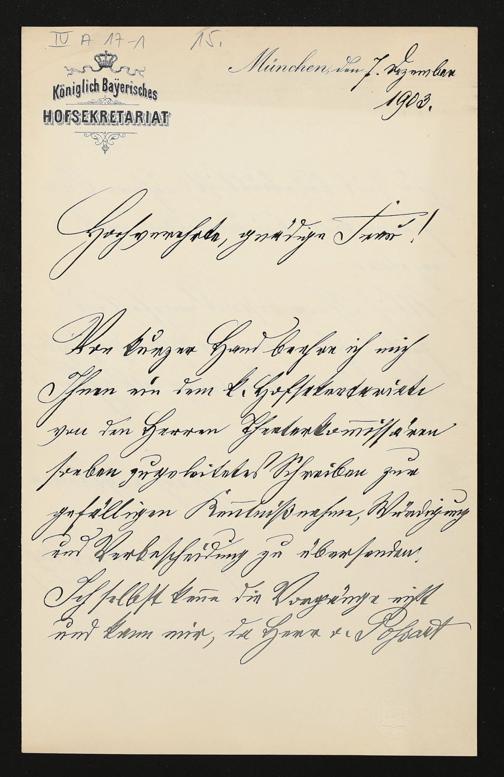 IV A 17-1 15.
Königlich Bayerisches
HOFSEKRETARIAT
München, den 7. Dezember
1903.
Hochverehrte, gnädige Frau!
Von kurzer Hand beehre ich mich
Ihnen ein dem k. Hofsekretariate
von den Herren Theaterkommissären
soeben zugeleitetes Schreiben zur
gefälligen Kenntnißnahme, Würdigung
und Verbescheidung zu übersenden.
Ich selbst kenne die Vorgänge nicht
und kann mir, da Herr v. Possart